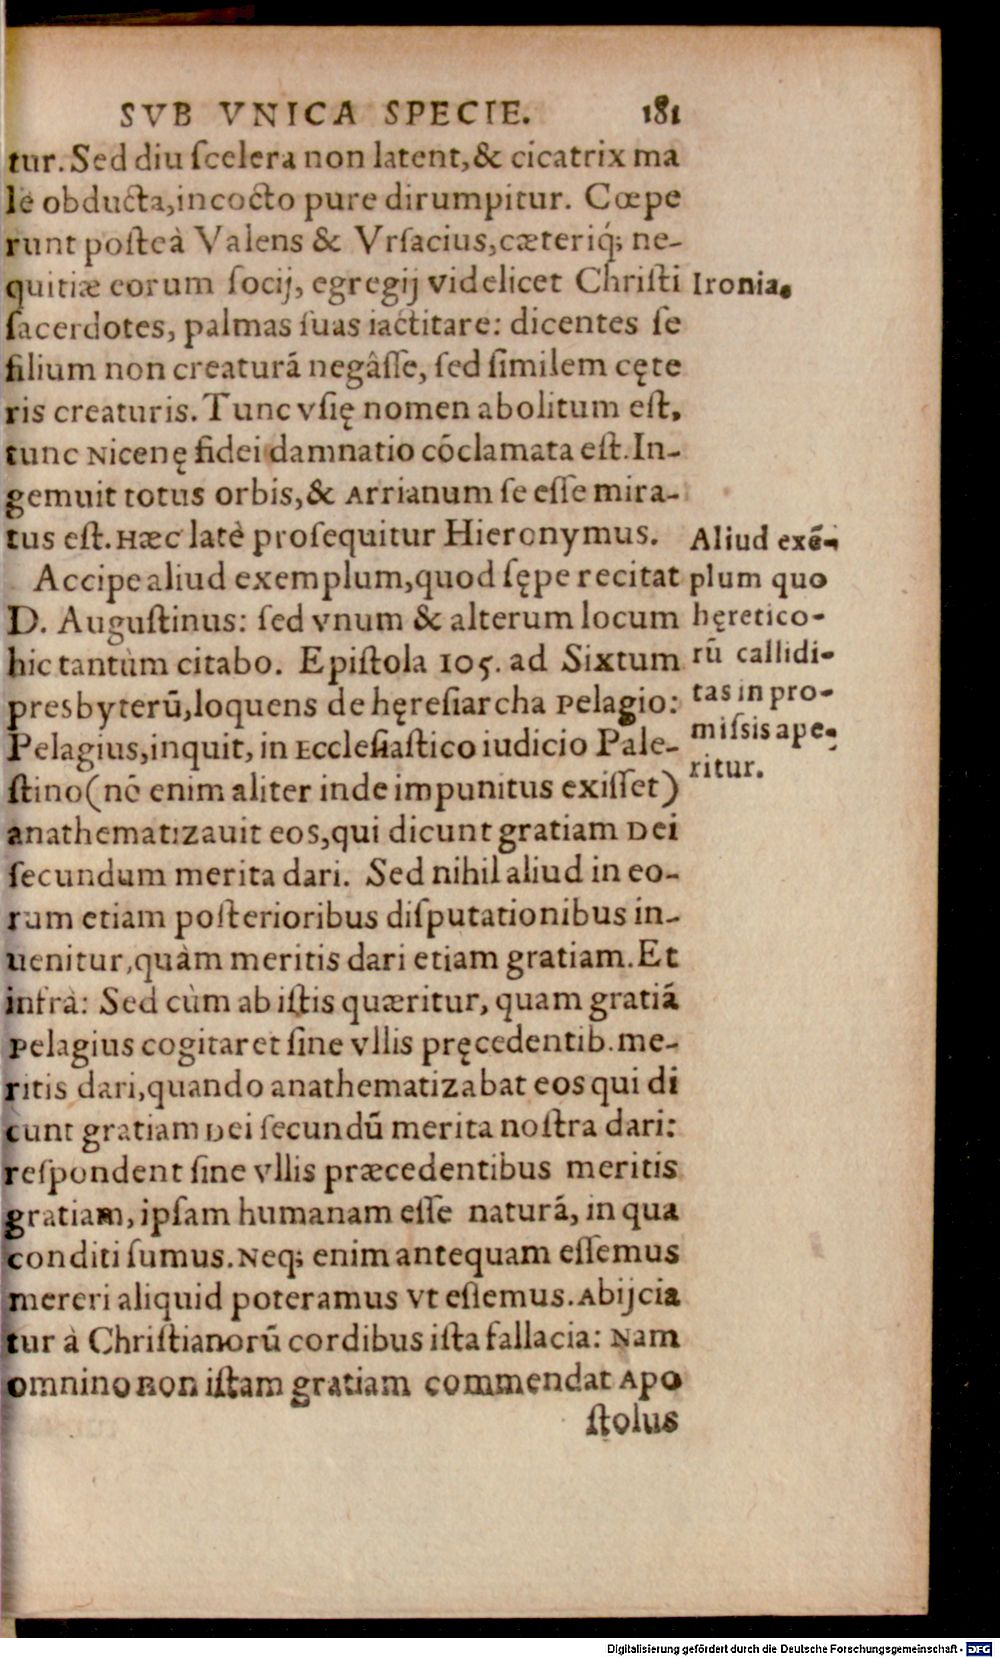 SVB VNICA SPECIE. 181
tur. Sed diu ſcelera non latent, & cicatrix ma
lè obducta, incocto pure dirumpitur. Cœpe
runt poſteà Valens & Vrſacius, cæteriq́; ne-
quitiæ eorum ſocij, egregij videlicet Chriſti
ſacerdotes, palmas ſuas iactitare: dicentes ſe
filium non creaturā negâſſe, ſed ſimilem cęte
ris creaturis. Tunc vſię nomen abolitum eſt,
tunc Nicenę fidei damnatio cōclamata eſt. In-
gemuit totus orbis, & Arrianum ſe eſſe mira-
tus eſt. Hæc latè proſequitur Hieronymus.
Accipe aliud exemplum, quod ſępe recitat
D. Auguſtinus: ſed vnum & alterum locum
hic tantùm citabo. Epiſtola 105. ad Sixtum
presbyterū, loquens de hęreſiarcha Pelagio:
Pelagius, inquit, in Eccleſiaſtico iudicio Pale-
ſtino (nō enim aliter inde impunitus exiſſet)
anathematizauit eos, qui dicunt gratiam Dei
ſecundum merita dari. Sed nihil aliud in eo-
rum etiam poſterioribus diſputationibus in-
uenitur, quàm meritis dari etiam gratiam. Et
infrà: Sed cùm ab iſtis quæritur, quam gratiā
Pelagius cogitaret ſine vllis pręcedentib. me-
ritis dari, quando anathematizabat eos qui di
cunt gratiam Dei ſecundū merita noſtra dari:
reſpondent ſine vllis præcedentibus meritis
gratiam, ipſam humanam eſſe naturā, in qua
conditi ſumus. Neq; enim antequam eſſemus
mereri aliquid poteramus vt eſſemus. Abijcia
tur à Chriſtianorū cordibus iſta fallacia: Nam
omnino non iſtam gratiam commendat Apo
ſtolus
Ironia.
Aliud exē-
plum quo
hęretico-
rū callidi-
tas in pro-
miſsis ape-
ritur.
Digitalisierung gefördert durch die Deutsche Forschungsgemeinschaft - DFG